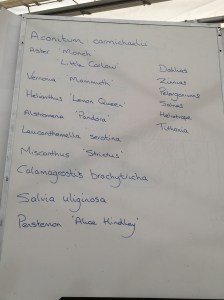 Aconitum carmichaelii
Aster 'Mönch'
'Little Carlow'
Vernonia 'Mammuth'
Helianthus 'Lemon Queen'
Alstromeria 'Pandora'
Leucanthemella serotina
Miscanthus 'Strictus'
Calamagrostis brachytricha
Salvia uliginosa
Penstemon 'Alice Hindley'
Dahlias
Zinnias
Pelargoniums
Salvias
Heliotrope
Tithonia